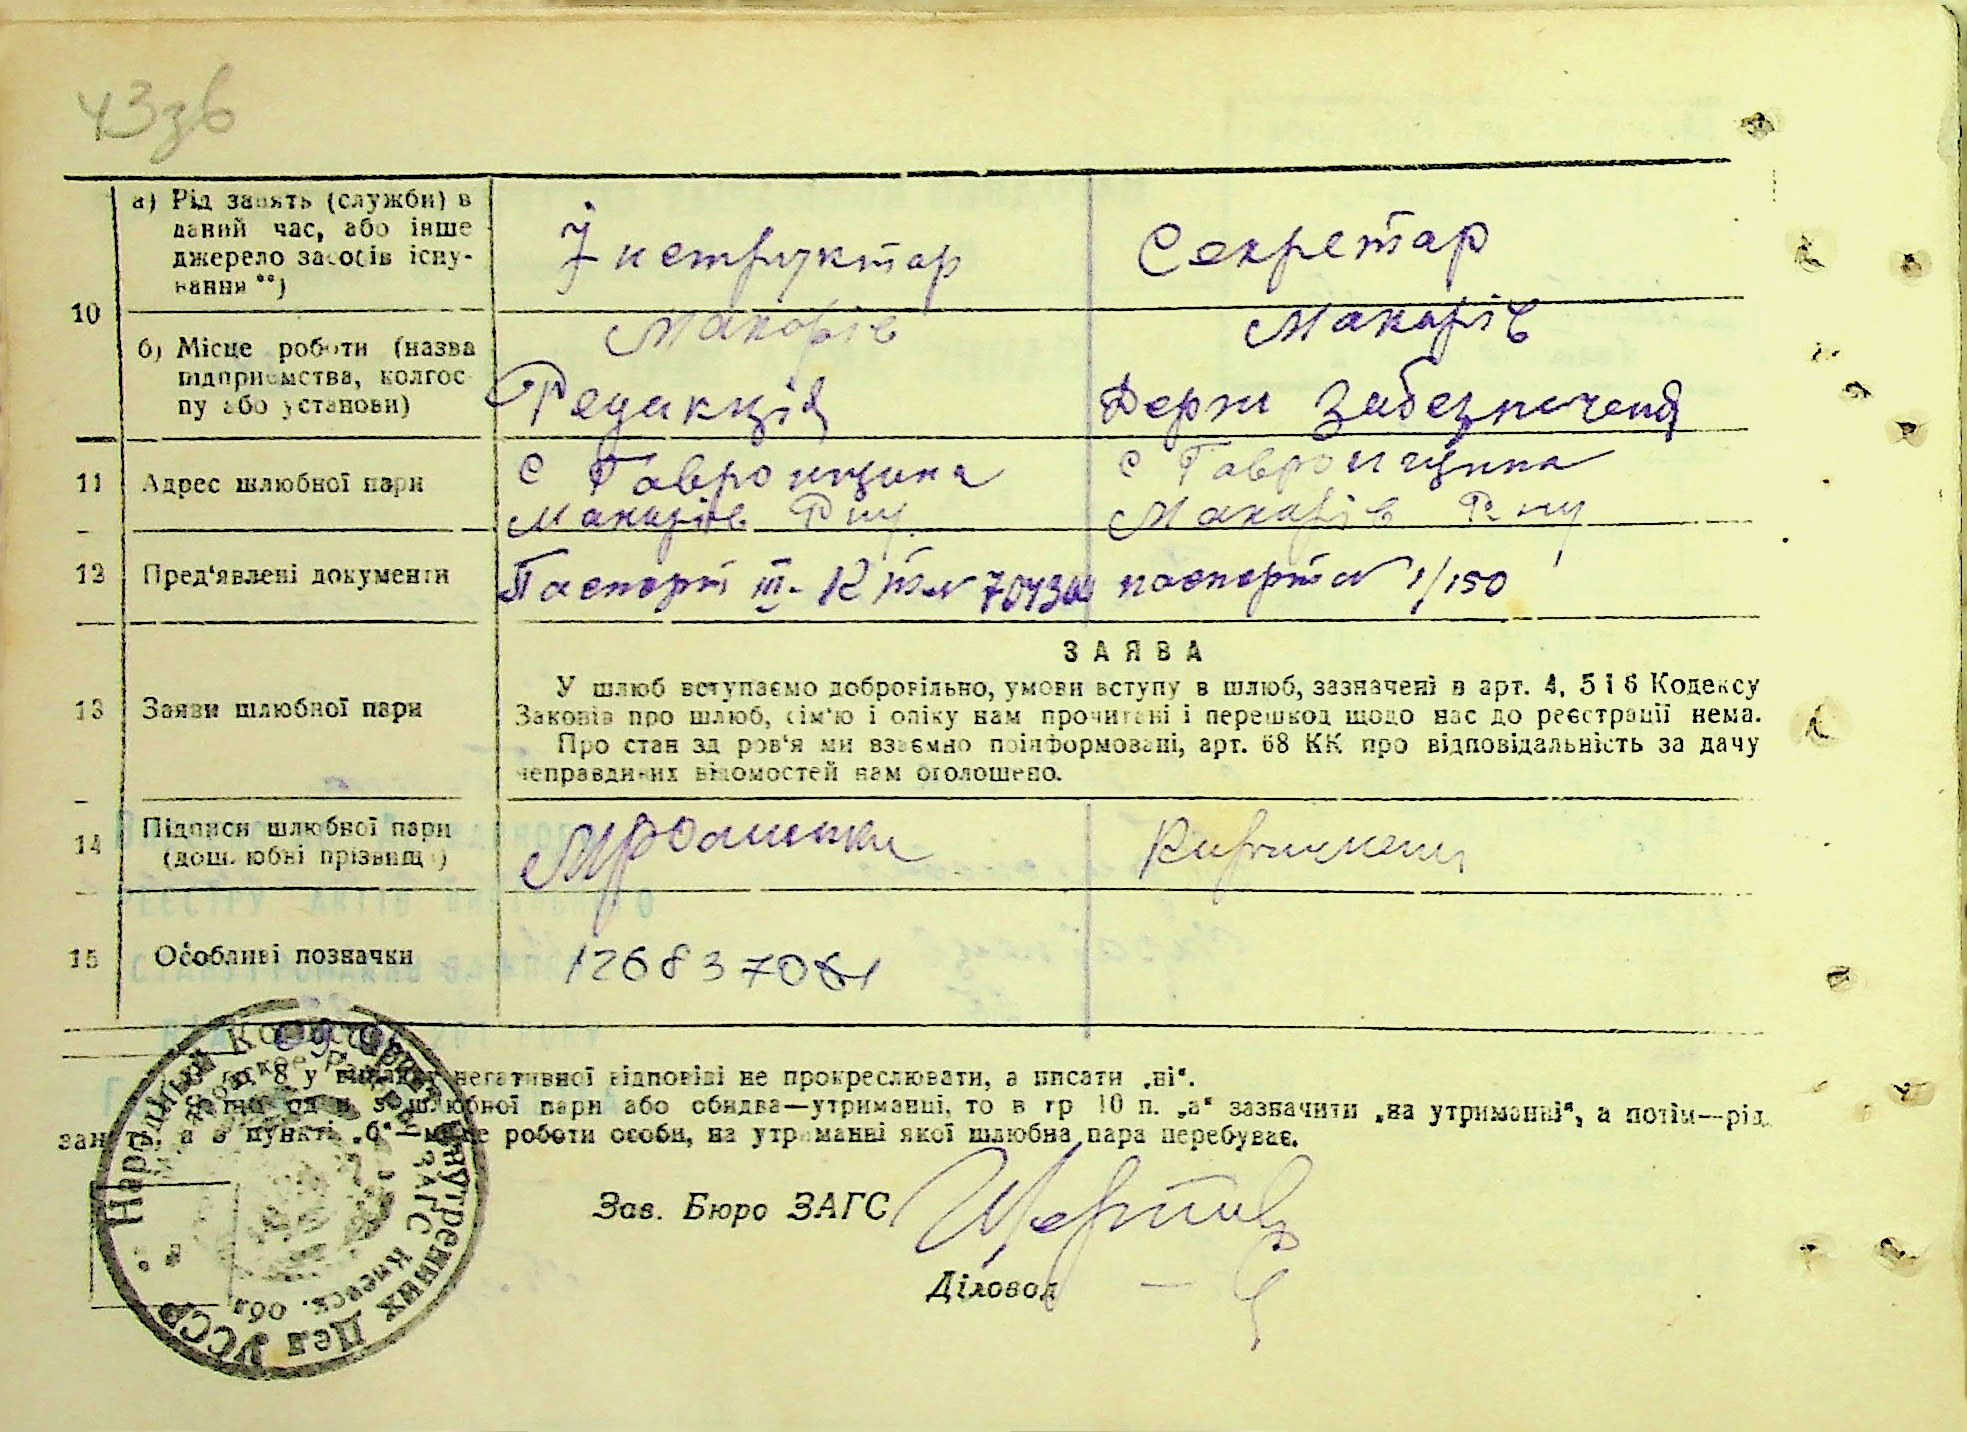 43зв
10
а) Рід занять (служби) в
даний час, або інше
джерело засобів існу-
вання **)
Інструктар
Секретар
б) Місце роботи (назва
підприємства, колгос-
пу або установи)
Макарів
Редакція
Макарів
Держ Забезпеченя
11
Адрес шлюбної пари
с Гавронщина
Макарів
с Гавронщина
Макарів
12
Пред'явлені документи
Паспорт III-
паспорт № 1/150
13
Заяви шлюбної пари
ЗАЯВА
У шлюб вступаємо добровільно, умови вступу в шлюб, зазначені в арт. 4, 5 і 6 Кодексу
Законів про шлюб, сім'ю і опіку нам прочитані і перешкод щодо нас до реєстрації нема.
Про стан здоров'я ми взаємно поінформовані, арт. 68 КК про відповідальність за дачу
неправдивих відомостей нам оголошено.
14
Підписи шлюбної пари
(дошлюбні прізвища)
15
Особливі позначки
126837061
8 у випадку негативної відповіді не прокреслювати, а писати „ні“.
шлюбної пари або обидва—утриманці, то в гр 10 п. „а“ зазначити „на утриманні“, а потім—рід
занять, а в пункті „б“—місце роботи особи, на утриманні якої шлюбна пара перебуває.
Зав. Бюро ЗАГС
Діловод —
Народный Комиссариат Внутренних Дел УССР
ЗАГС Киевск. обл